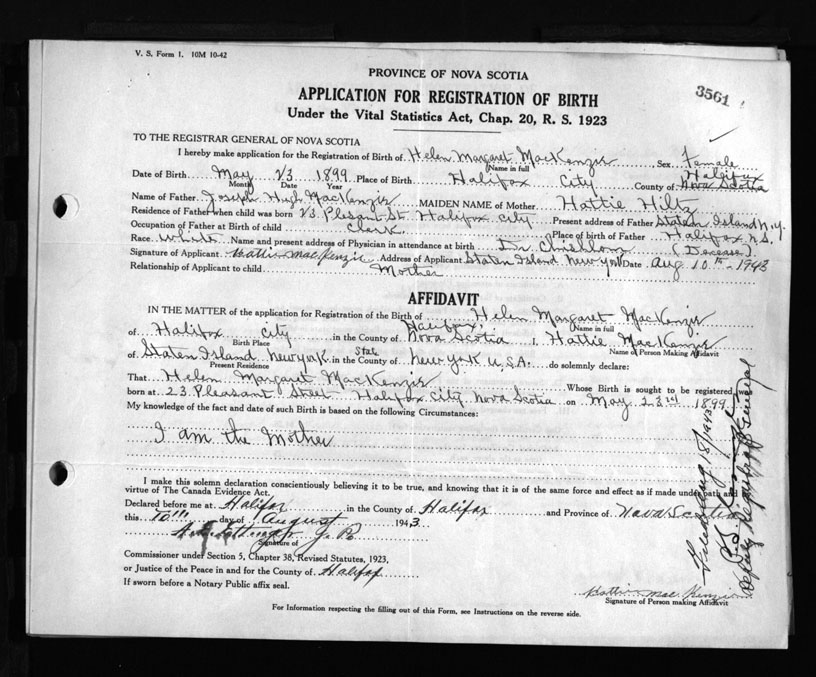 V. S. Form 1. 10M 10-42
PROVINCE OF NOVA SCOTIA
3561
APPLICATION FOR REGISTRATION OF BIRTH
Under the Vital Statistics Act, Chap. 20, R. S. 1923
TO THE REGISTRAR GENERAL OF NOVA SCOTIA
I hereby make application for the Registration of Birth of Helen Margaret MacKenzie Sex Female
Name in full
Halifax
Date of Birth May 23 1899 Place of Birth Halifax City County of Nova Scotia
Month Date Year
Name of Father Joseph Hugh MacKenzie MAIDEN NAME of Mother Hattie Hiltz
Residence of Father when child was born 23 Plesant St. Halifax City Present address of Father Staten Island N.Y.
Occupation of Father at Birth of child Clark Place of birth of Father Halifax N.S.
Race White Name and present address of Physician in attendance at birth Dr Chisholm (Decease)
Signature of Applicant Hattie MacKenzie Address of Applicant Staten Island New York Date Aug 10th - 1943
Relationship of Applicant to child Mother
AFFIDAVIT
IN THE MATTER of the application for Registration of the Birth of Helen Margaret MacKenzie
Name in full
Halifax,
of Halifax City in the County of Nova Scotia I, Hattie MacKenzie
Birth Place Name of Person Making Affidavit
State
of Staten Island New York in the County of New York U.S.A. do solemnly declare:
Present Residence
That Helen Margaret MacKenzie Whose Birth is sought to be registered was
born at 23 Pleasant Street - Halifax City Nova Scotia on May 23rd 1899
My knowledge of the fact and date of such Birth is based on the following Circumstances:
I am the Mother
I make this solemn declaration conscientiously believing it to be true, and knowing that it is of the same force and effect as if made under oath and
virtue of The Canada Evidence Act.
Declared before me at Halifax in the County of Halifax and Province of Nova Scotia
this 10th day of August 1943
J. P.
Signature of
Commissioner under Section 5, Chapter 38, Revised Statutes, 1923,
or Justice of the Peace in and for the County of Halifax
If sworn before a Notary Public affix seal.
Hattie MacKenzie
Signature of Person making Affidavit
For Information respecting the filling out of this Form, see Instructions on the reverse side.
Deputy Registrar General